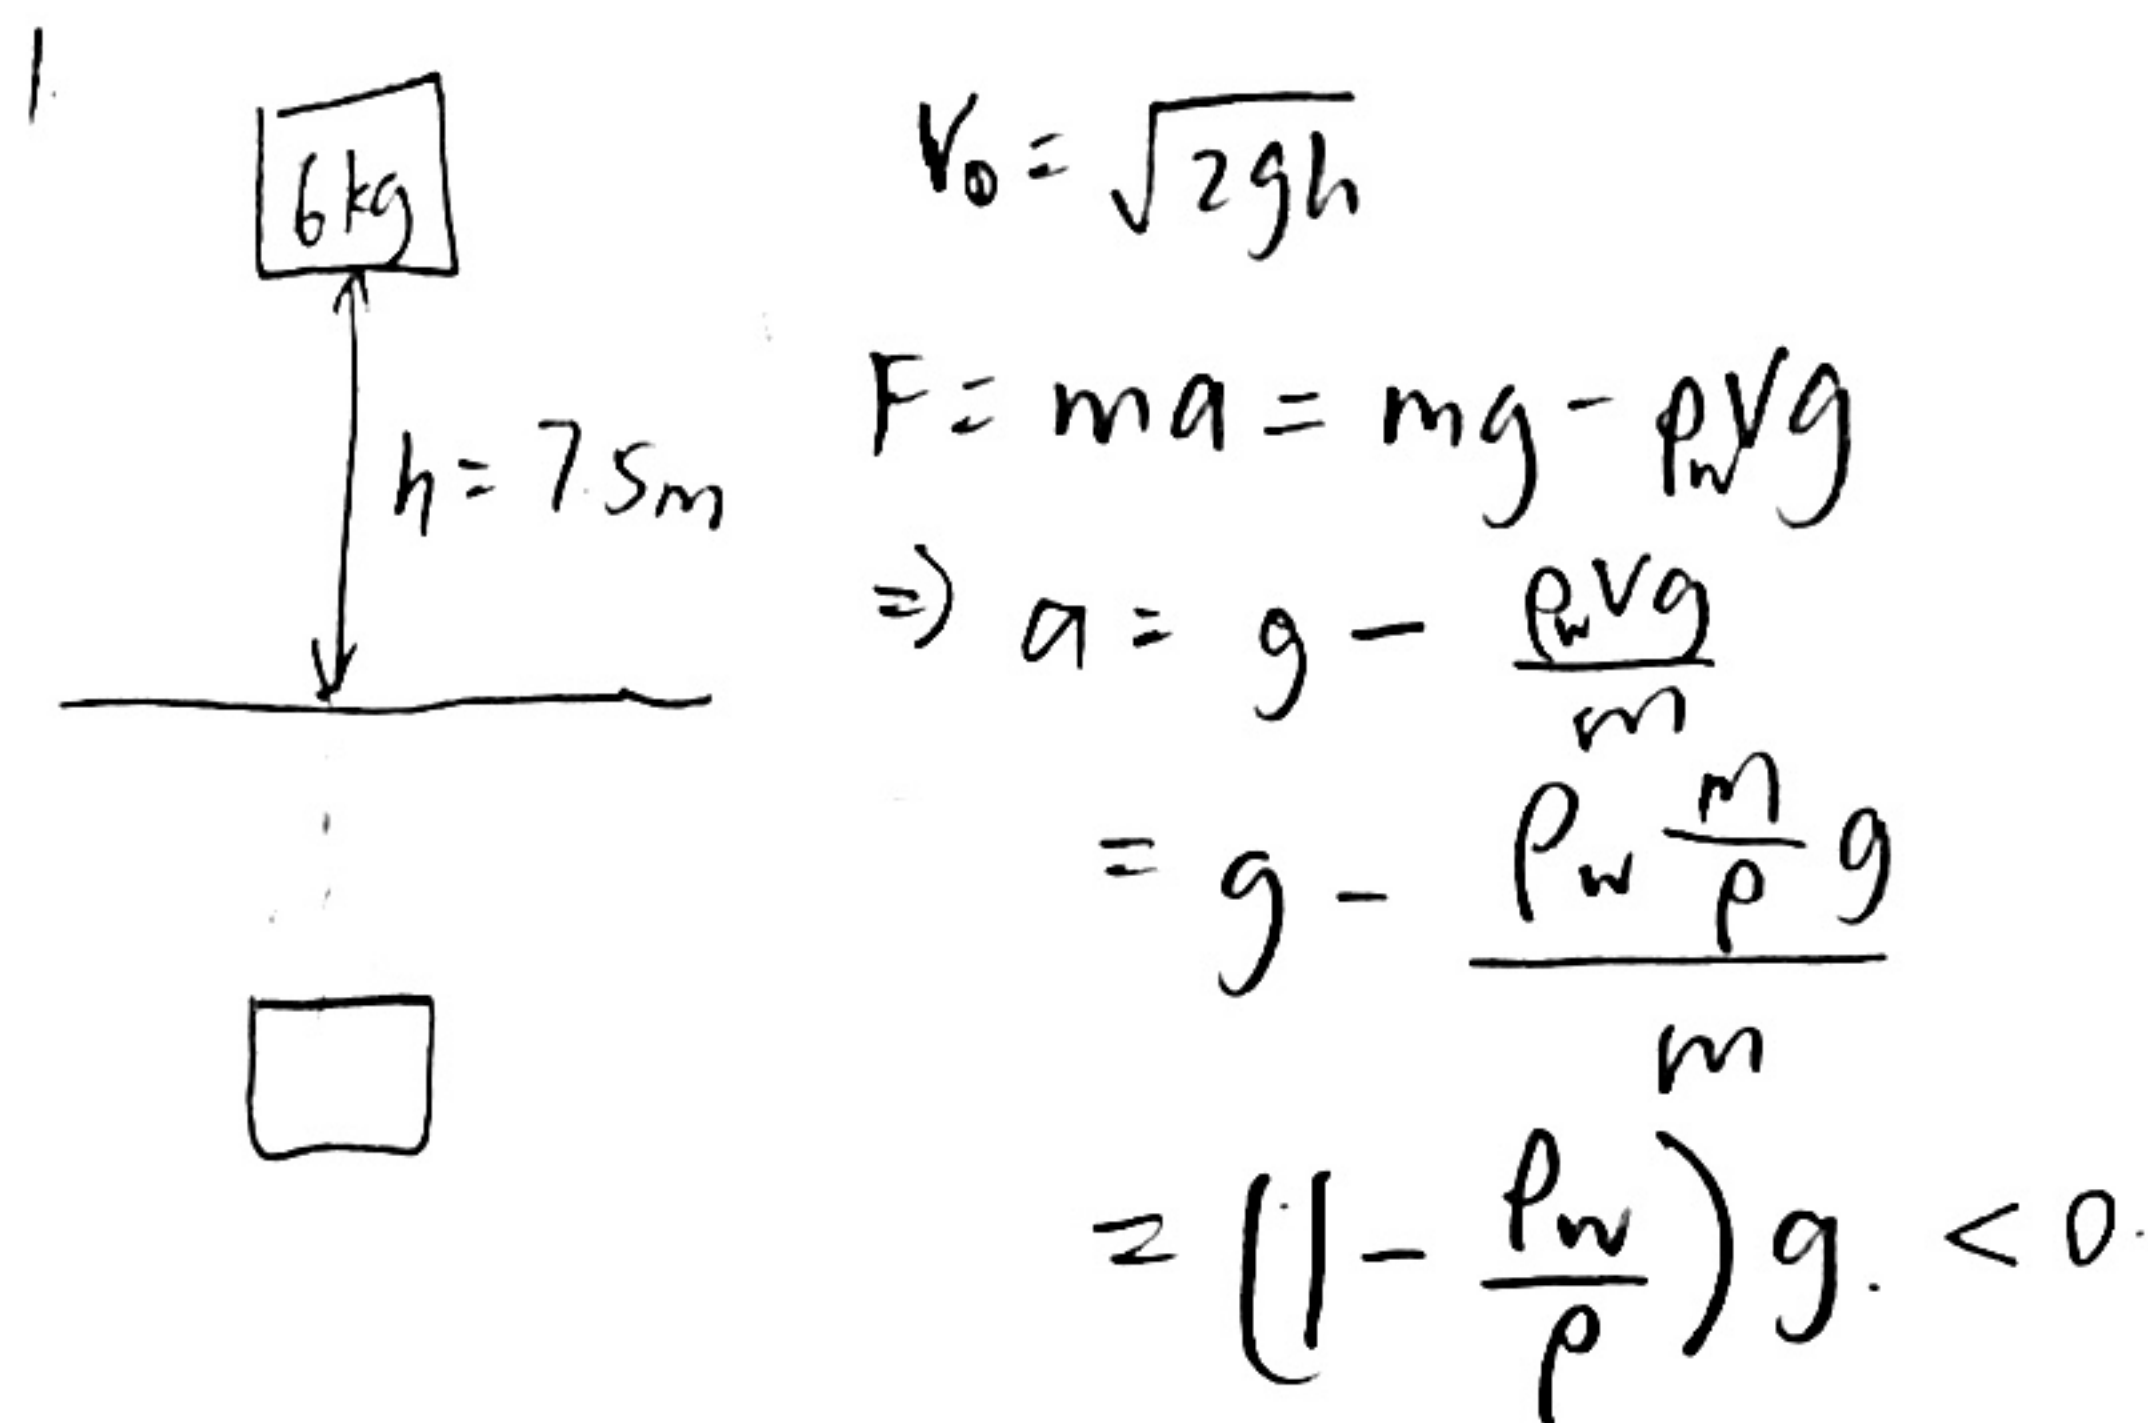 1.
6kg
h = 7.5m
V₀ = √2gh
F = ma = mg - ρwVg
⇒ a = g - ρwVg/m
= g - ρw m/ρ g / m
= (1 - ρw/ρ) g. < 0.